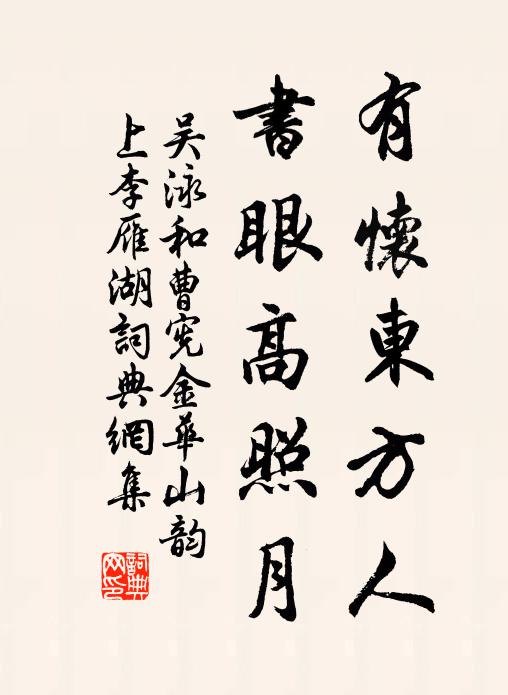 有懷東方人
書眼高照月
吳泳和曹宪金華山韵
上李雁湖詞典網集
詞典
网印